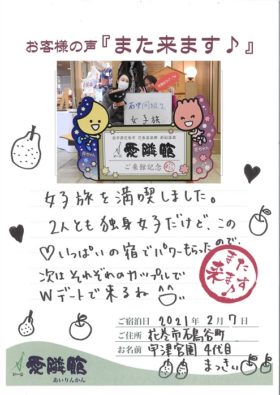 お客様の声『また来ます♪』
女子旅
愛隣館
ご来館記念
女子旅を満喫しました。
2人とも独身女子だけど、この
♡いっぱいの宿でパワーもらったので、
次はそれぞれのカップルで
Wデートで来るね
また来ます♪
ご宿泊日 2021年2月7日
ご住所 花巻市石鳥谷町
お名前 4代目
まっきぃ
愛隣館
あいりんかん